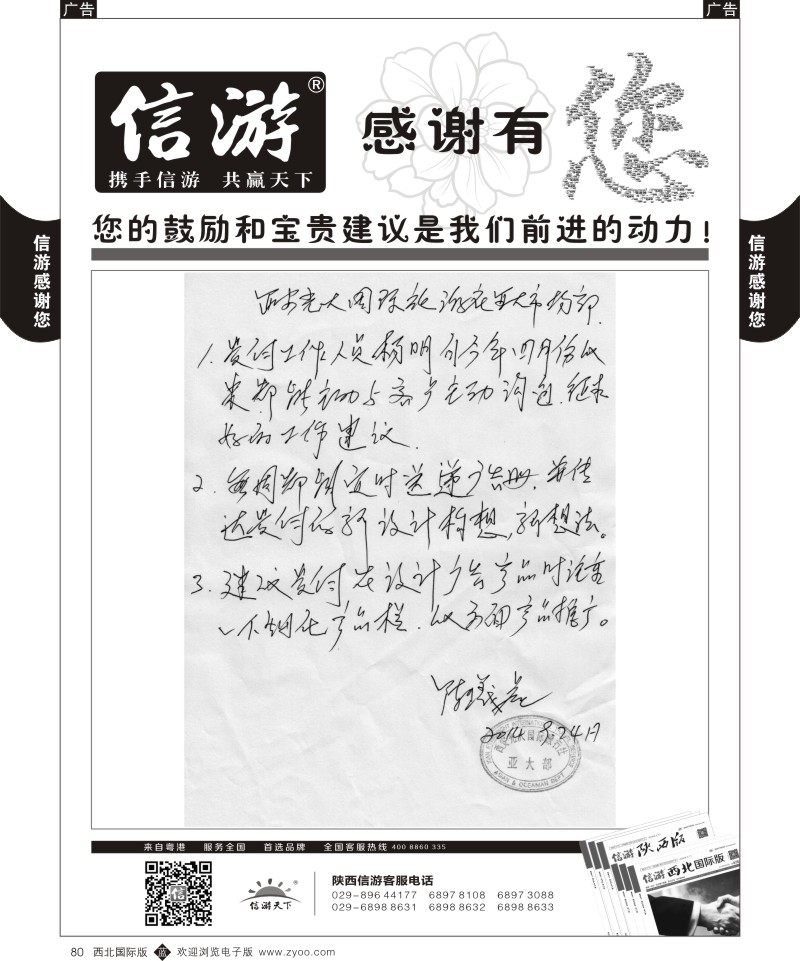 广告
广告
信游®
携手信游 共赢天下
感谢有
您
您的鼓励和宝贵建议是我们前进的动力!
信游感谢您
信游感谢您
西安光大国际旅游社亚大市场部
1. 工作人员杨明 今年四月份以
来 都能主动与客户主动沟通、征求
好的工作建议.
2. 每周都能定时送递广告册、并传
达 的新设计构想,新想法。
3. 建议 在设计广告产品时
一个 产品栏、以 产品推广。
2014 9.24日
亚大部
ASIAN & OCEANIAN DEPT
来自粤港 服务全国 首选品牌 全国客服热线 400 8860 335
信游
信游天下®
陕西信游客服电话
029-896 44177 6897 8108 6897 3088
029-6898 8631 6898 8632 6898 8633
信游 陕西版
信游 西北国际版
80 西北国际版 蓝 欢迎浏览电子版 www.zyoo.com